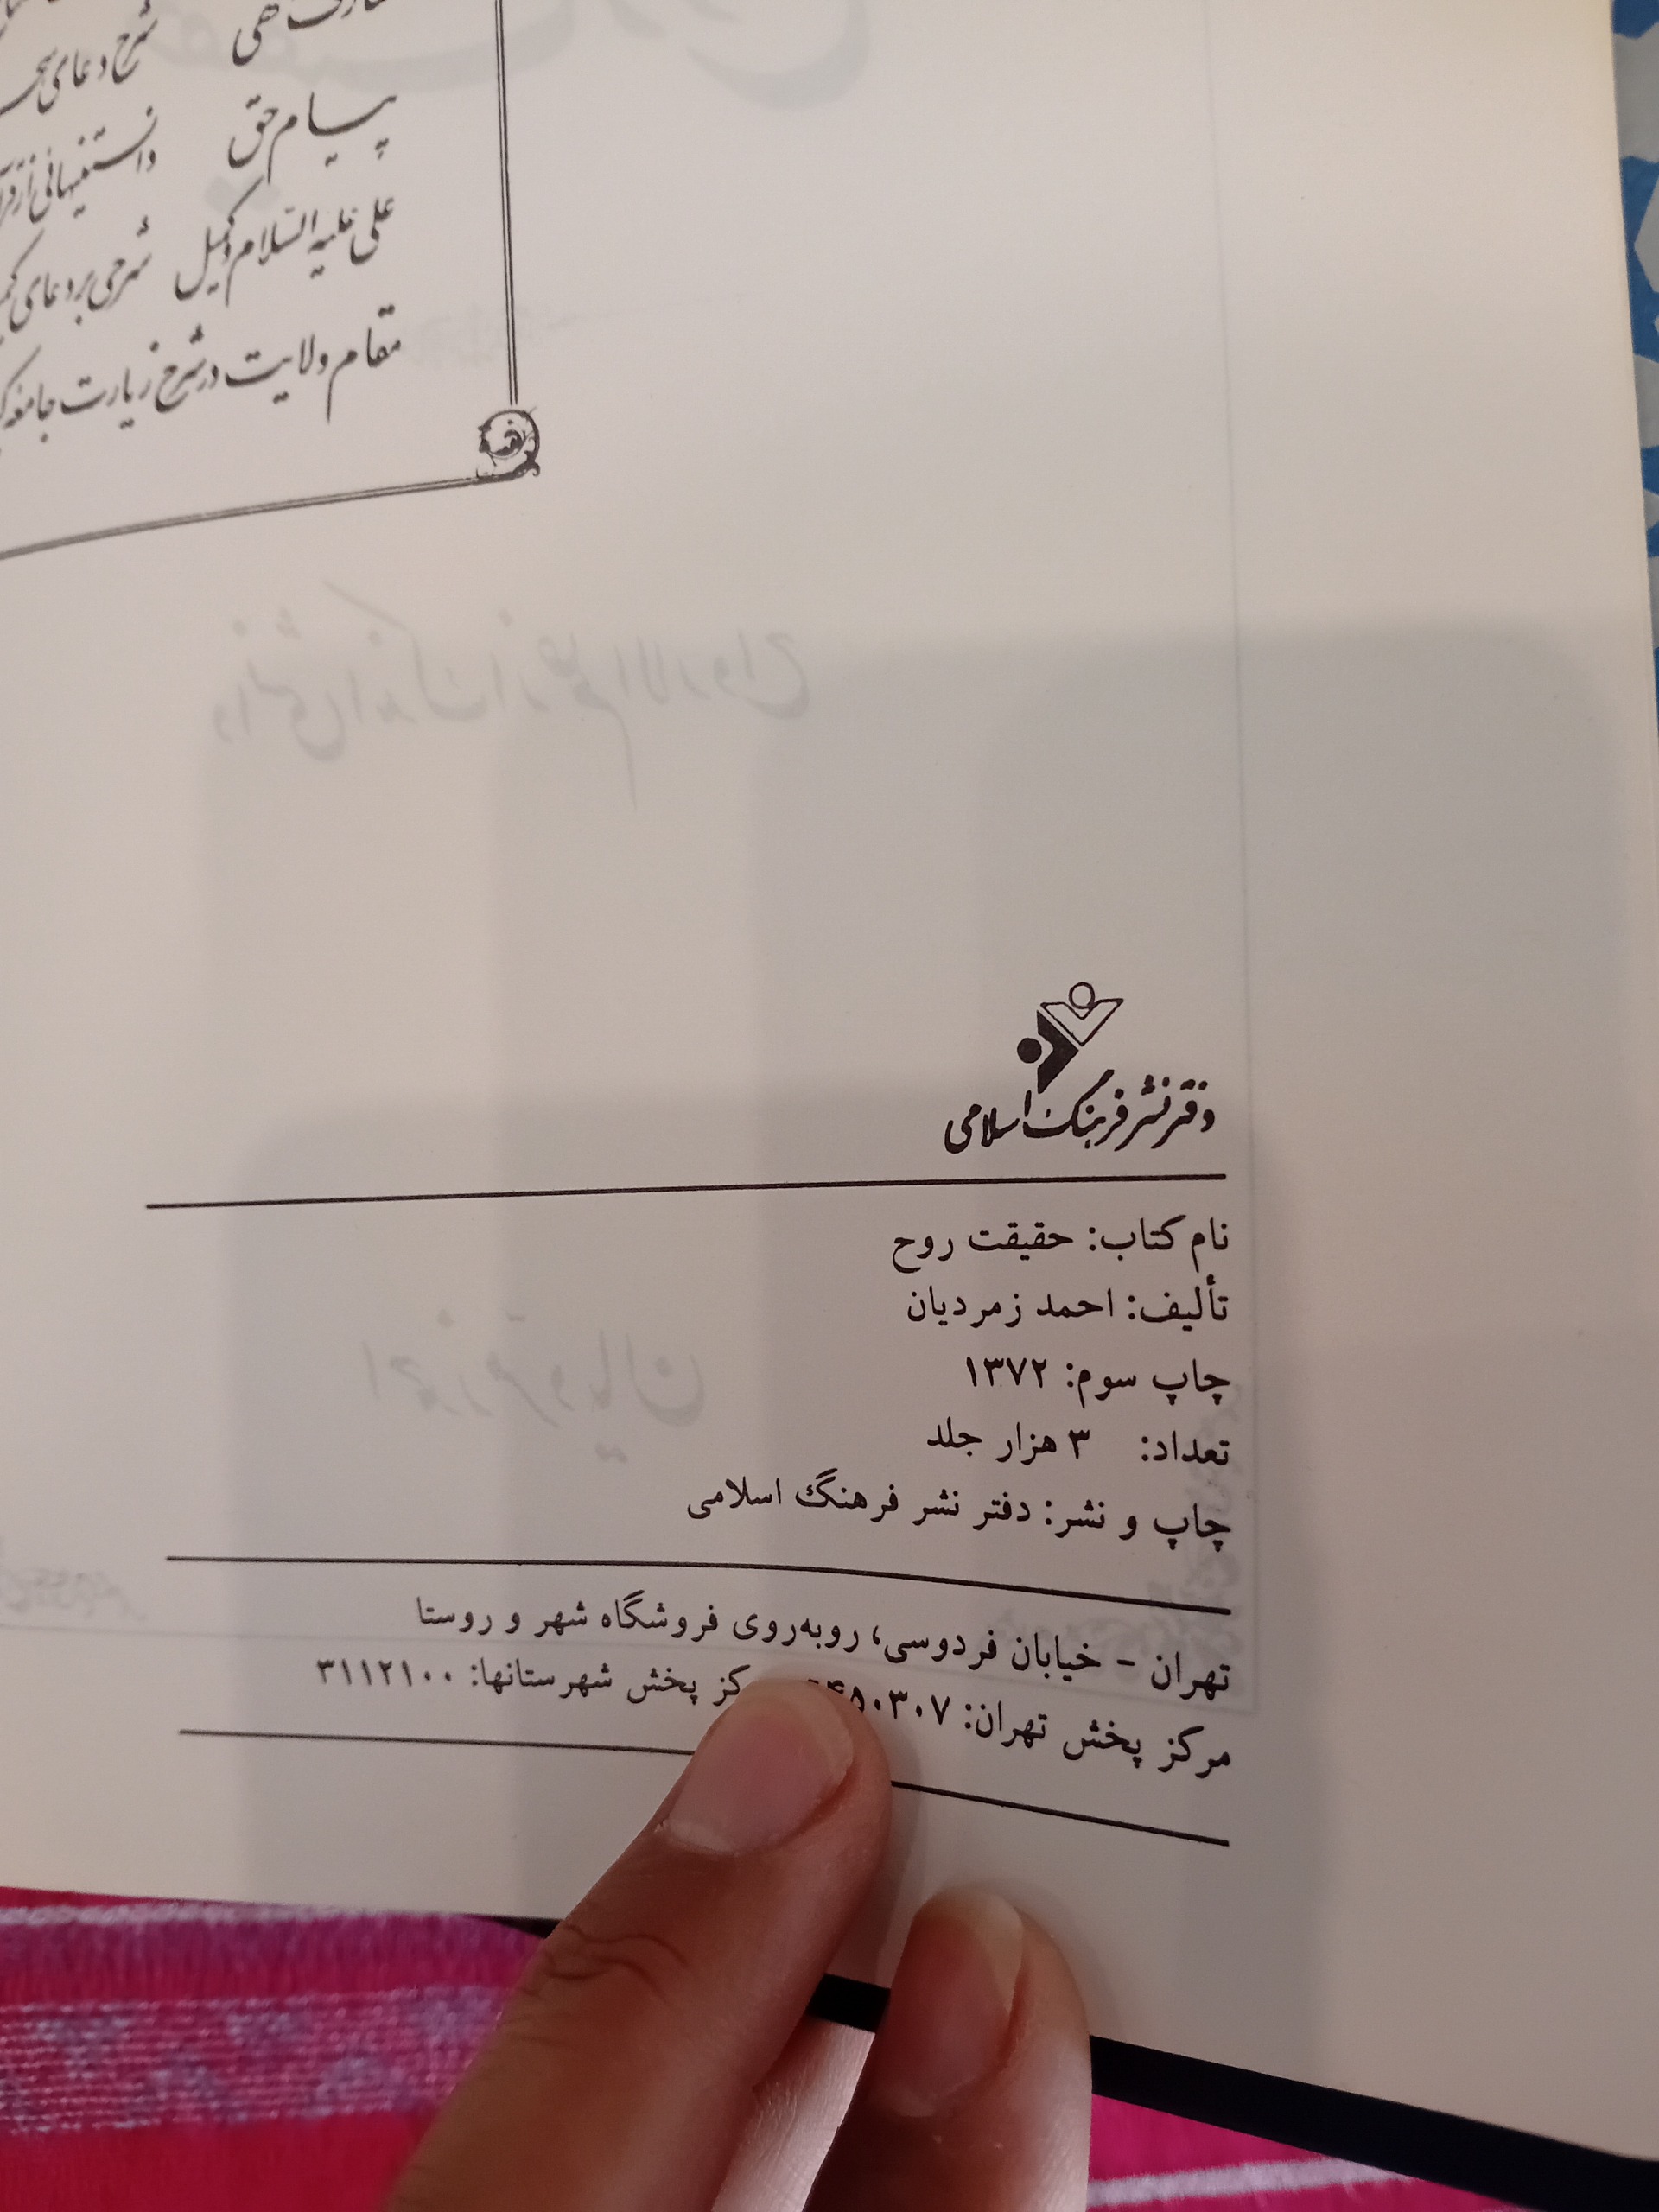 پیام حق
علی علیه السلام و کمیل شرحی بر دعای
مقام ولایت در شرح زیارت جامعه
دفتر نشر فرهنگ اسلامی
نام کتاب: حقیقت روح
تألیف: احمد زمردیان
چاپ سوم: ۱۳۷۲
تعداد: ۳ هزار جلد
چاپ و نشر: دفتر نشر فرهنگ اسلامی
تهران - خیابان فردوسی، روبه‌روی فروشگاه شهر و روستا
مرکز پخش تهران: پخش شهرستانها: ۳۱۱۲۱۰۰